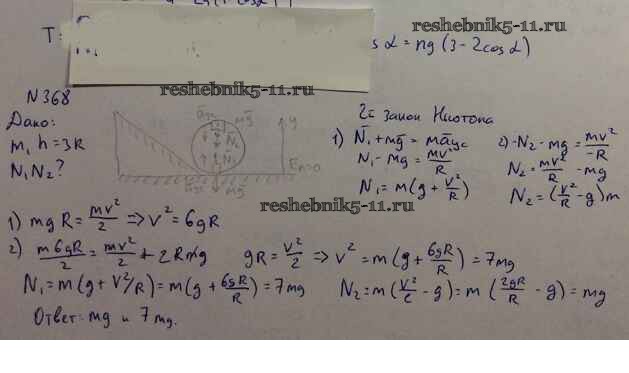 reshebnik5-11.ru
T =
cos α = mg (3 - 2cos α)
N 368
reshebnik5-11.ru
Дано:
m, h = 3R
N₁ N₂ ?
mg
N₂
N₁
mg
y
Eп=0
2й закон Ньютона
1) N̄₁ + mḡ = māцс
N₁ - mg = mv²/R
N₁ = m(g + v²/R)
2) -N₂ - mg = mv²/-R
N₂ = mv²/R - mg
N₂ = (v²/R - g)m
reshebnik5-11.ru
1) mgR = mv²/2 ⇒ v² = 6gR
2) m6gR/2 = mv²/2 + 2Rmg gR = v²/2 ⇒ v² = m(g + 6gR/R) = 7mg
N₁ = m(g + v²/R) = m(g + 6gR/R) = 7mg N₂ = m(v²/R - g) = m(2gR/R - g) = mg
Ответ: mg и 7mg.
reshebnik5-11.ru